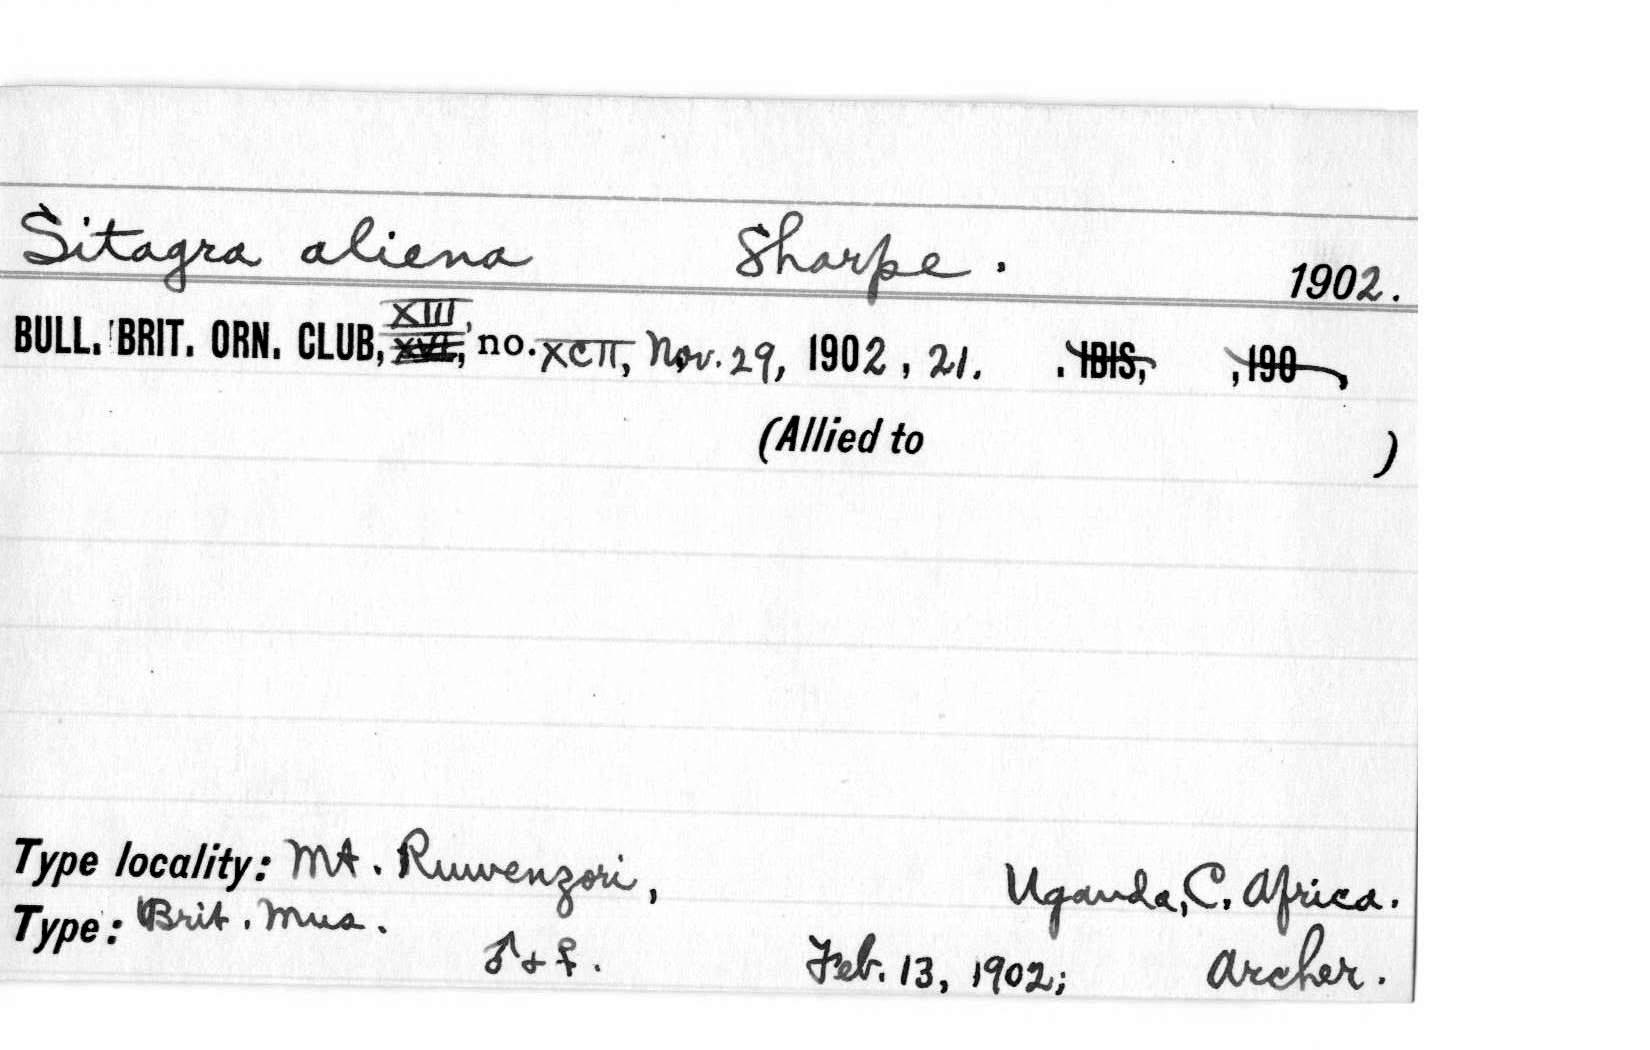 Sitagra aliena Sharpe. 1902.
XIII,
BULL. BRIT. ORN. CLUB, XVI, no. XCII, Nov. 29, 1902, 21. . IBIS, , 190 ,
(Allied to )
Type locality: Mt. Ruwenzori, Uganda, C. Africa.
Type: Brit. Mus.
♂ + ♀. Feb. 13, 1902; Archer.